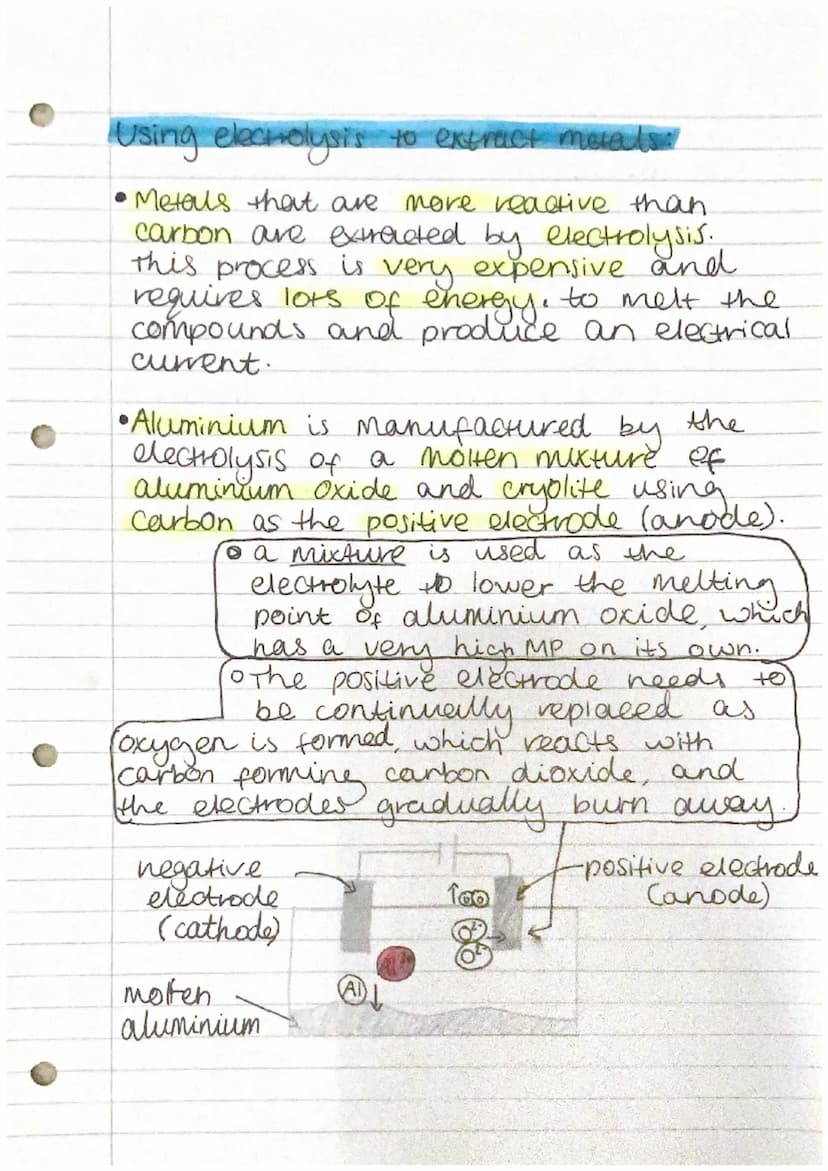 Using electrolysis to extract metals:
• Metals that are more reactive than
carbon are extracted by electrolysis.
This process is very expensive and
requires lots of energy. to melt the
compounds and produce an electrical
current.
• Aluminium is manufactured by the
electrolysis of a molten mixture of
aluminium oxide and cryolite using
carbon as the positive electrode (anode).
a mixture is used as the
electrolyte to lower the melting
point of aluminium oxide, which
has a very high MP on its own.
The positive electrode needs to
be continually replaced as
oxygen is formed, which reacts with
carbon forming carbon dioxide, and
the electrodes gradually burn away.
negative
electrode
(cathode)
positive electrode
(anode)
O²⁻
O²⁻
Al
molten
aluminium